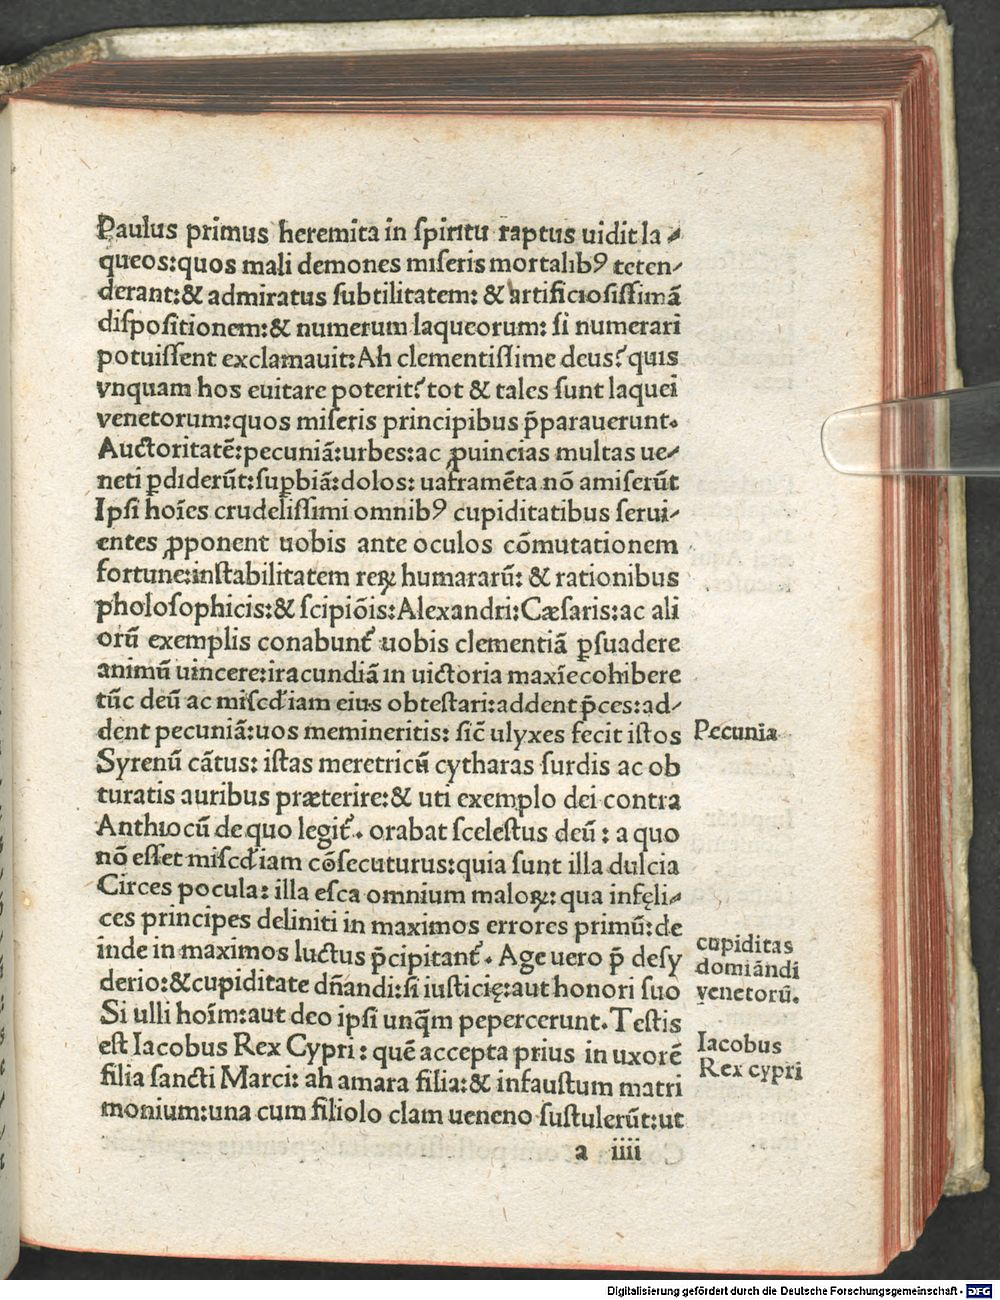 Paulus primus heremita in ſpiritu raptus uidit la⸗
queos:quos mali demones miſeris mortalibꝰ teten⸗
derant:& admiratus ſubtilitatem: & artificioſiſſimā
diſpoſitionem:& numerum laqueorum: ſi numerari
potuiſſent exclamauit:Ah clementiſſime deus? quis
vnquam hos euitare poterit? tot & tales ſunt laquei
venetorum:quos miſeris principibus p̄parauerunt.
Auctoritatē:pecuniā:urbes:ac ꝓuincias multas ue⸗
neti ꝑdiderūt:ſuꝑbiā:dolos: uaframēta nō amiſerūt
Ipſi hoīes crudeliſſimi omnibꝰ cupiditatibus ſerui⸗
entes ꝓponent uobis ante oculos cōmutationem
fortune:inſtabilitatem reꝝ humararū: & rationibus
pholoſophicis:& ſcipiōis:Alexandri:Cæſaris:ac ali
orū exemplis conabunt᷑ uobis clementiā ꝑſuadere
animū uincere:iracundiā in uictoria maxīe cohibere
tūc deū ac miſcd̕iam eius obteſtari:addent p̄ces:ad⸗
dent pecuniā:uos memineritis: ſic̄ ulyxes fecit iſtos
Syrenū cātus: iſtas meretricū cytharas ſurdis ac ob
turatis auribus præterire:& uti exemplo dei contra
Anthiocū de quo legit᷑. orabat ſceleſtus deū: a quo
nō eſſet miſcd̕iam cōſecuturus:quia ſunt illa dulcia
Circes pocula: illa eſca omnium maloꝝ: qua infęli⸗
ces principes deliniti in maximos errores primū:de
inde in maximos luctus p̄cipitant᷑. Age uero p̄ deſy
derio:&cupiditate dn̄andi:ſi iuſticię:aut honori ſuo
Si ulli hoīm:aut deo ipſi unq̄m pepercerunt. Teſtis
eſt Iacobus Rex Cypri: quē accepta prius in uxorē
filia ſancti Marci: ah amara filia:& infauſtum matri
monium:una cum filiolo clam ueneno ſuſtulerūt:ut
a iiii
Pecunia
cupiditas
domiāndi
venetorū.
Iacobus
Rex cypri
Digitalisierung gefördert durch die Deutsche Forschungsgemeinschaft - DFG